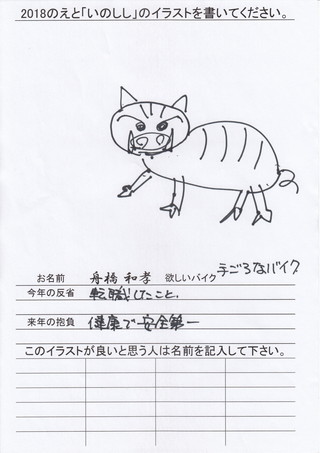 2018のえと「いのしし」のイラストを書いてください。
お名前 舟橋 和孝 欲しいバイク 手ごろなバイク
今年の反省 転職したこと、
来年の抱負 健康で安全第一
このイラストが良いと思う人は名前を記入して下さい。